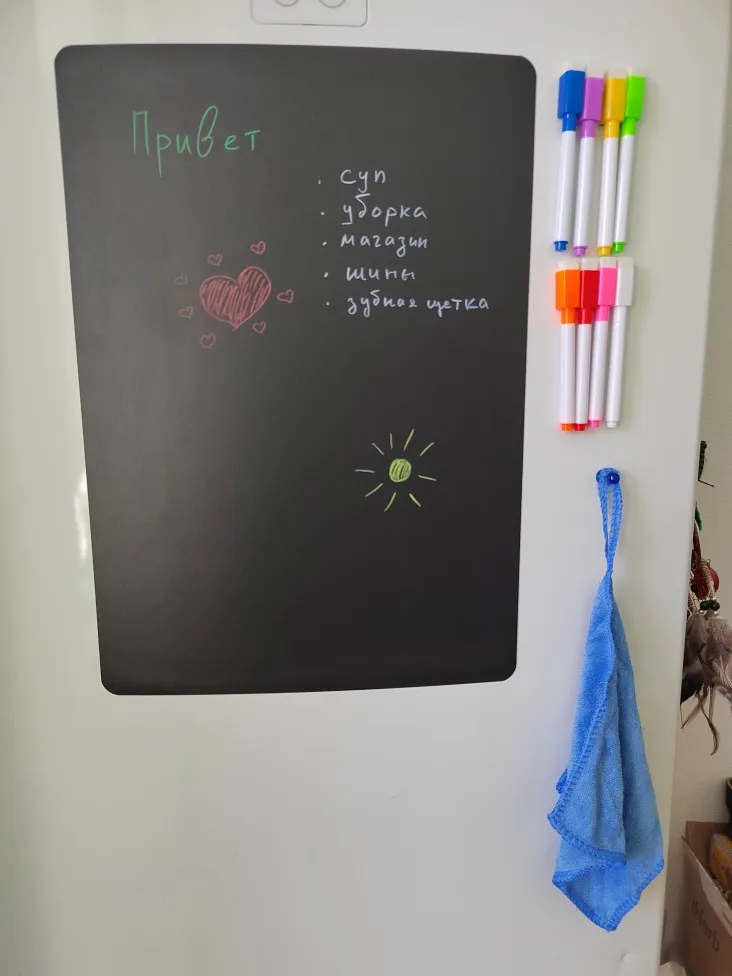 Привет
· суп
· уборка
· магазин
· шины
· зубная щетка
iHerb